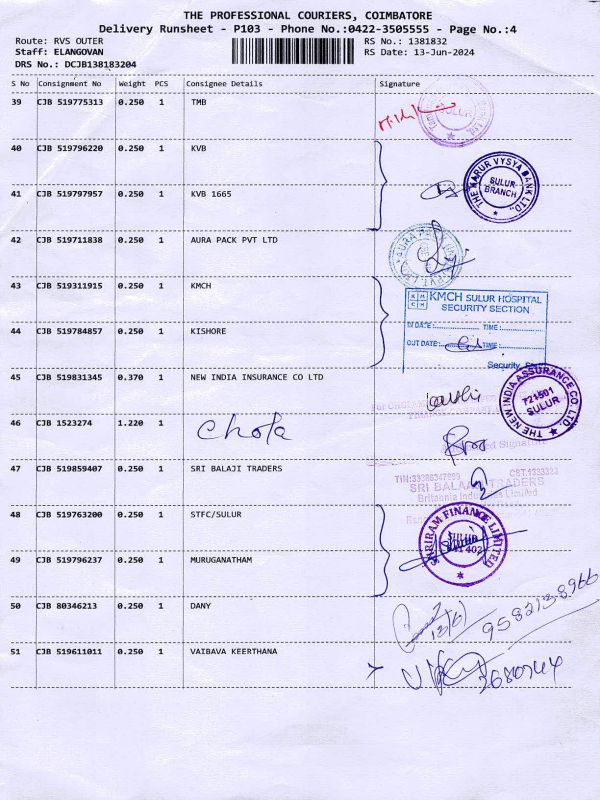 THE PROFESSIONAL COURIERS, COIMBATORE
Delivery Runsheet - P103 - Phone No.:0422-3505555 - Page No.:4
Route: RVS OUTER RS No.: 1381832
Staff: ELANGOVAN RS Date: 13-Jun-2024
DRS No.: DCJB138183204
S No Consignment No Weight PCS Consignee Details Signature
39 CJB 519775313 0.250 1 TMB
SULUR
40 CJB 519796220 0.250 1 KVB
THE KARUR VYSYA BANK LTD.,
SULUR-
BRANCH
41 CJB 519797957 0.250 1 KVB 1665
42 CJB 519711838 0.250 1 AURA PACK PVT LTD
43 CJB 519311915 0.250 1 KMCH
KMCH SULUR HOSPITAL
SECURITY SECTION
IN DATE: TIME:
44 CJB 519784857 0.250 1 KISHORE
OUT DATE: TIME:
Security
45 CJB 519831345 0.370 1 NEW INDIA INSURANCE CO LTD
THE NEW INDIA ASSURANCE CO. LTD.
721501
SULUR
46 CJB 1523274 1.220 1 Chola
Signature
47 CJB 519859407 0.250 1 SRI BALAJI TRADERS
SRI BALAJI TRADERS
Britannia Industries Limited
48 CJB 519763200 0.250 1 STFC/SULUR
SHRIRAM FINANCE LIMITED
49 CJB 519796237 0.250 1 MURUGANATHAM
50 CJB 80346213 0.250 1 DANY
13/6/
9582138966
51 CJB 519611011 0.250 1 VAIBAVA KEERTHANA